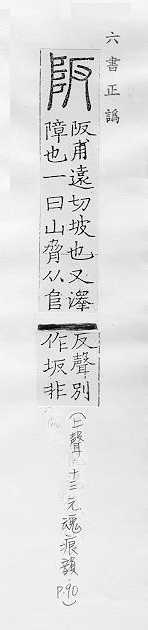 六書正譌
阪
阪甫遠切坡也又澤
障也一曰山脅从𨸏
反聲別
作坂非
(上聲 十三元魂痕韻 P.90)